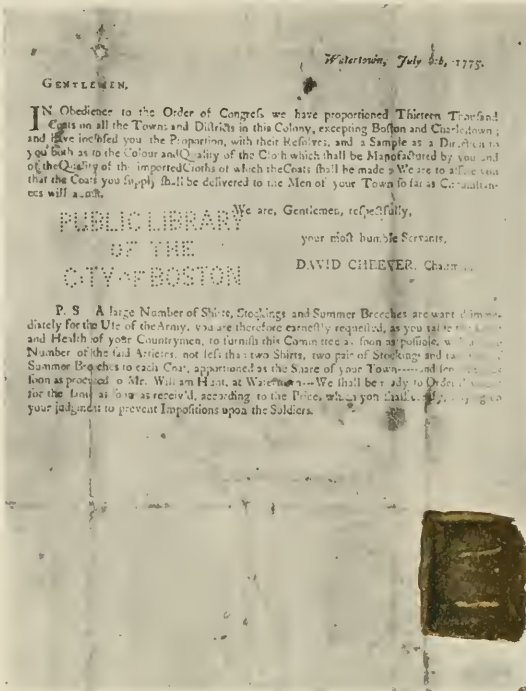 Watertown, July 6th, 1775.
GENTLEMEN,
IN Obedience to the Order of Congreſs we have proportioned Thirteen Thouſand
Coats on all the Towns and Diſtricts in this Colony, excepting Boſton and Charleſtown;
and have incloſed you the Proportion, with their Reſolves, and a Sample as a Direction to
you both as to the Colour and Quality of the Cloth which ſhall be Manufactured by you and
of the Quality of the imported Cloths of which the Coats ſhall be made We are to aſſure you
that the Coats you ſupply ſhall be delivered to the Men of your Town ſo far as
will
We are, Gentlemen, reſpectfully,
your moſt humble Servants,
DAVID CHEEVER,
PUBLIC LIBRARY
OF THE
CITY OF BOSTON
P. S A large Number of Shirts, Stockings and Summer Breeches are
diately for the Uſe of the Army, you are therefore earneſtly requeſted, as you
and Health of your Countrymen, to furniſh this Committee as ſoon as poſſible,
Number of the ſaid Articles, not leſs than two Shirts, two pair of Stockings and
Summer Breeches to each Coat, apportioned as the Share of your Town-----and
ſoon as procured to Mr. William Hunt, at Watertown---We ſhall be ready to Order
for the ſame as ſoon as receiv'd, according to the Price,
your judgment to prevent Impoſitions upon the Soldiers.